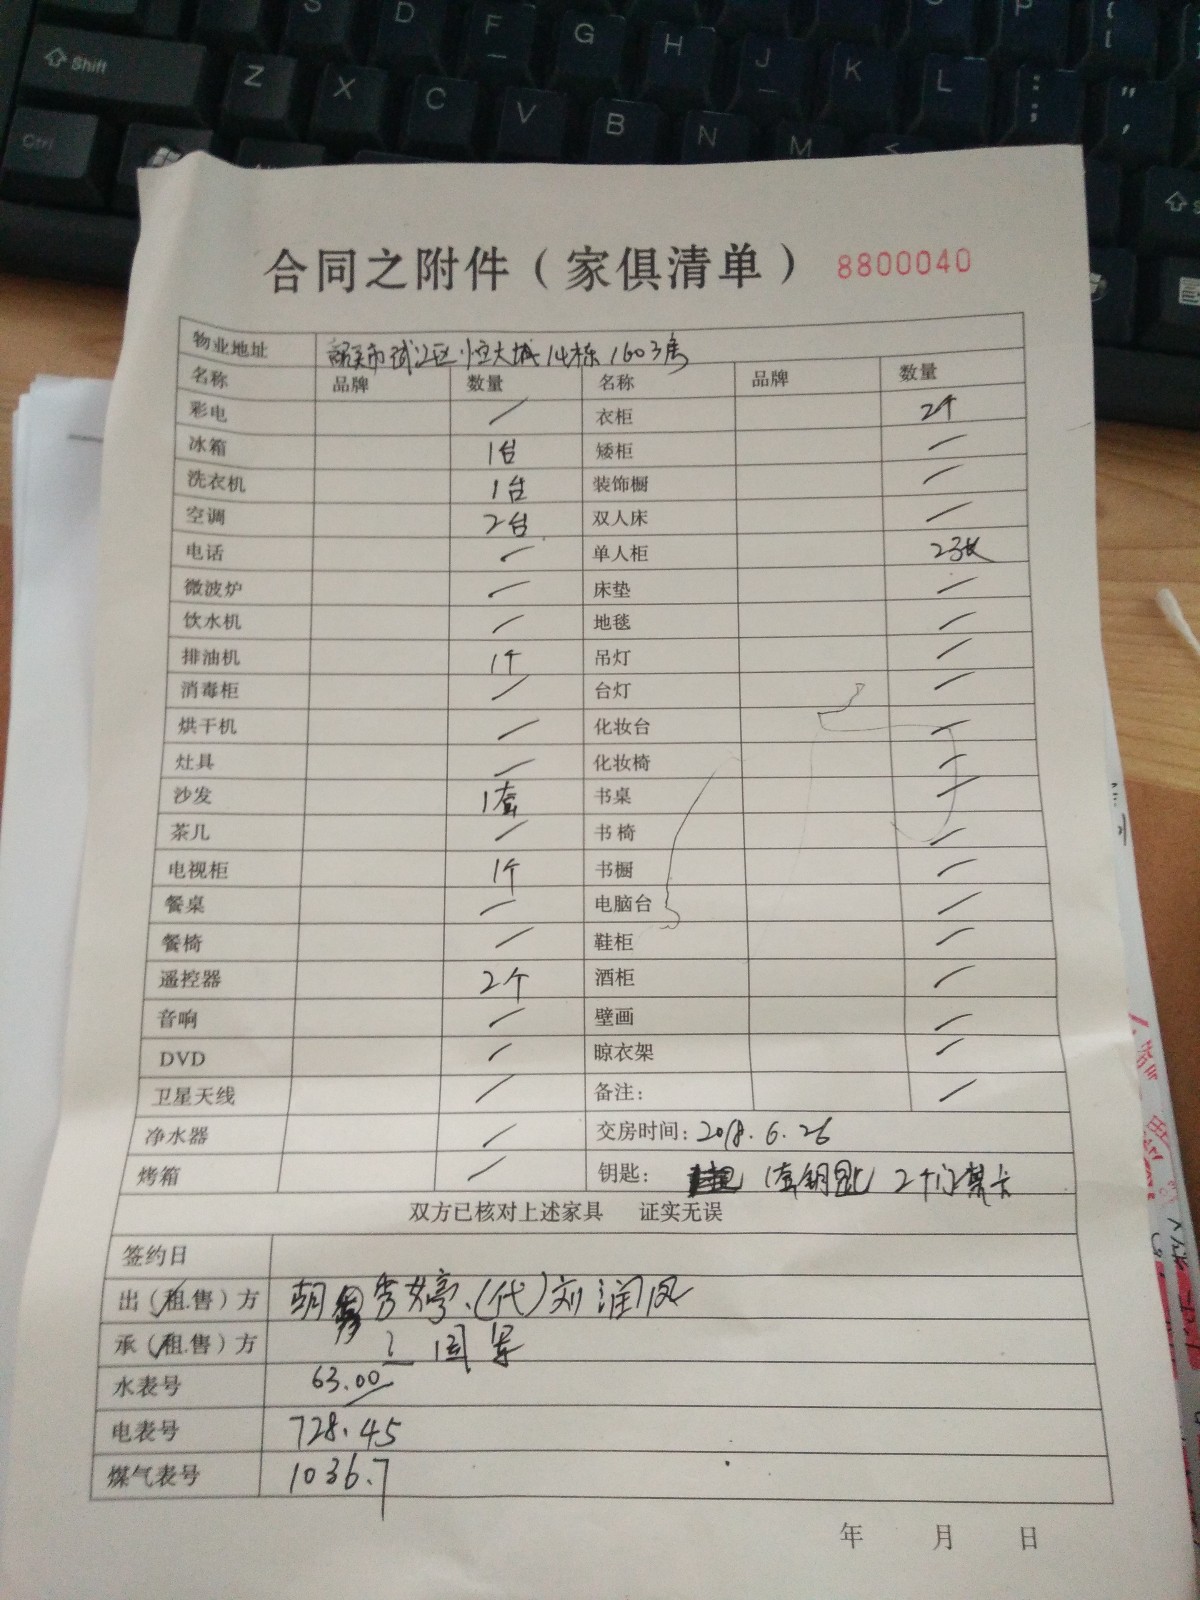 合同之附件（家俱清单） 8800040
物业地址 韶关市浈江区恒大城14栋1603房
名称 品牌 数量 名称 品牌 数量
彩电 / 衣柜 2个
冰箱 1台 矮柜 /
洗衣机 1台 装饰橱 /
空调 2台 双人床 /
电话 / 单人柜 2张
微波炉 / 床垫 /
饮水机 / 地毯 /
排油机 1个 吊灯 /
消毒柜 / 台灯 /
烘干机 / 化妆台 /
灶具 / 化妆椅 /
沙发 1套 书桌 /
茶几 / 书椅 /
电视柜 1个 书橱 /
餐桌 / 电脑台 /
餐椅 / 鞋柜 /
遥控器 2个 酒柜 /
音响 / 壁画 /
DVD / 晾衣架 /
卫星天线 / 备注： /
净水器 / 交房时间：2018.6.26
烤箱 / 钥匙： 1套钥匙 2个门禁卡
双方已核对上述家具 证实无误
签约日
出（租.售）方 秀婷、(代)刘润凤
承（租.售）方
水表号 63.00
电表号 728.45
煤气表号 1036.7
年 月 日
Shift
S D F G H J K L P
Z X C V B N M
Ctrl